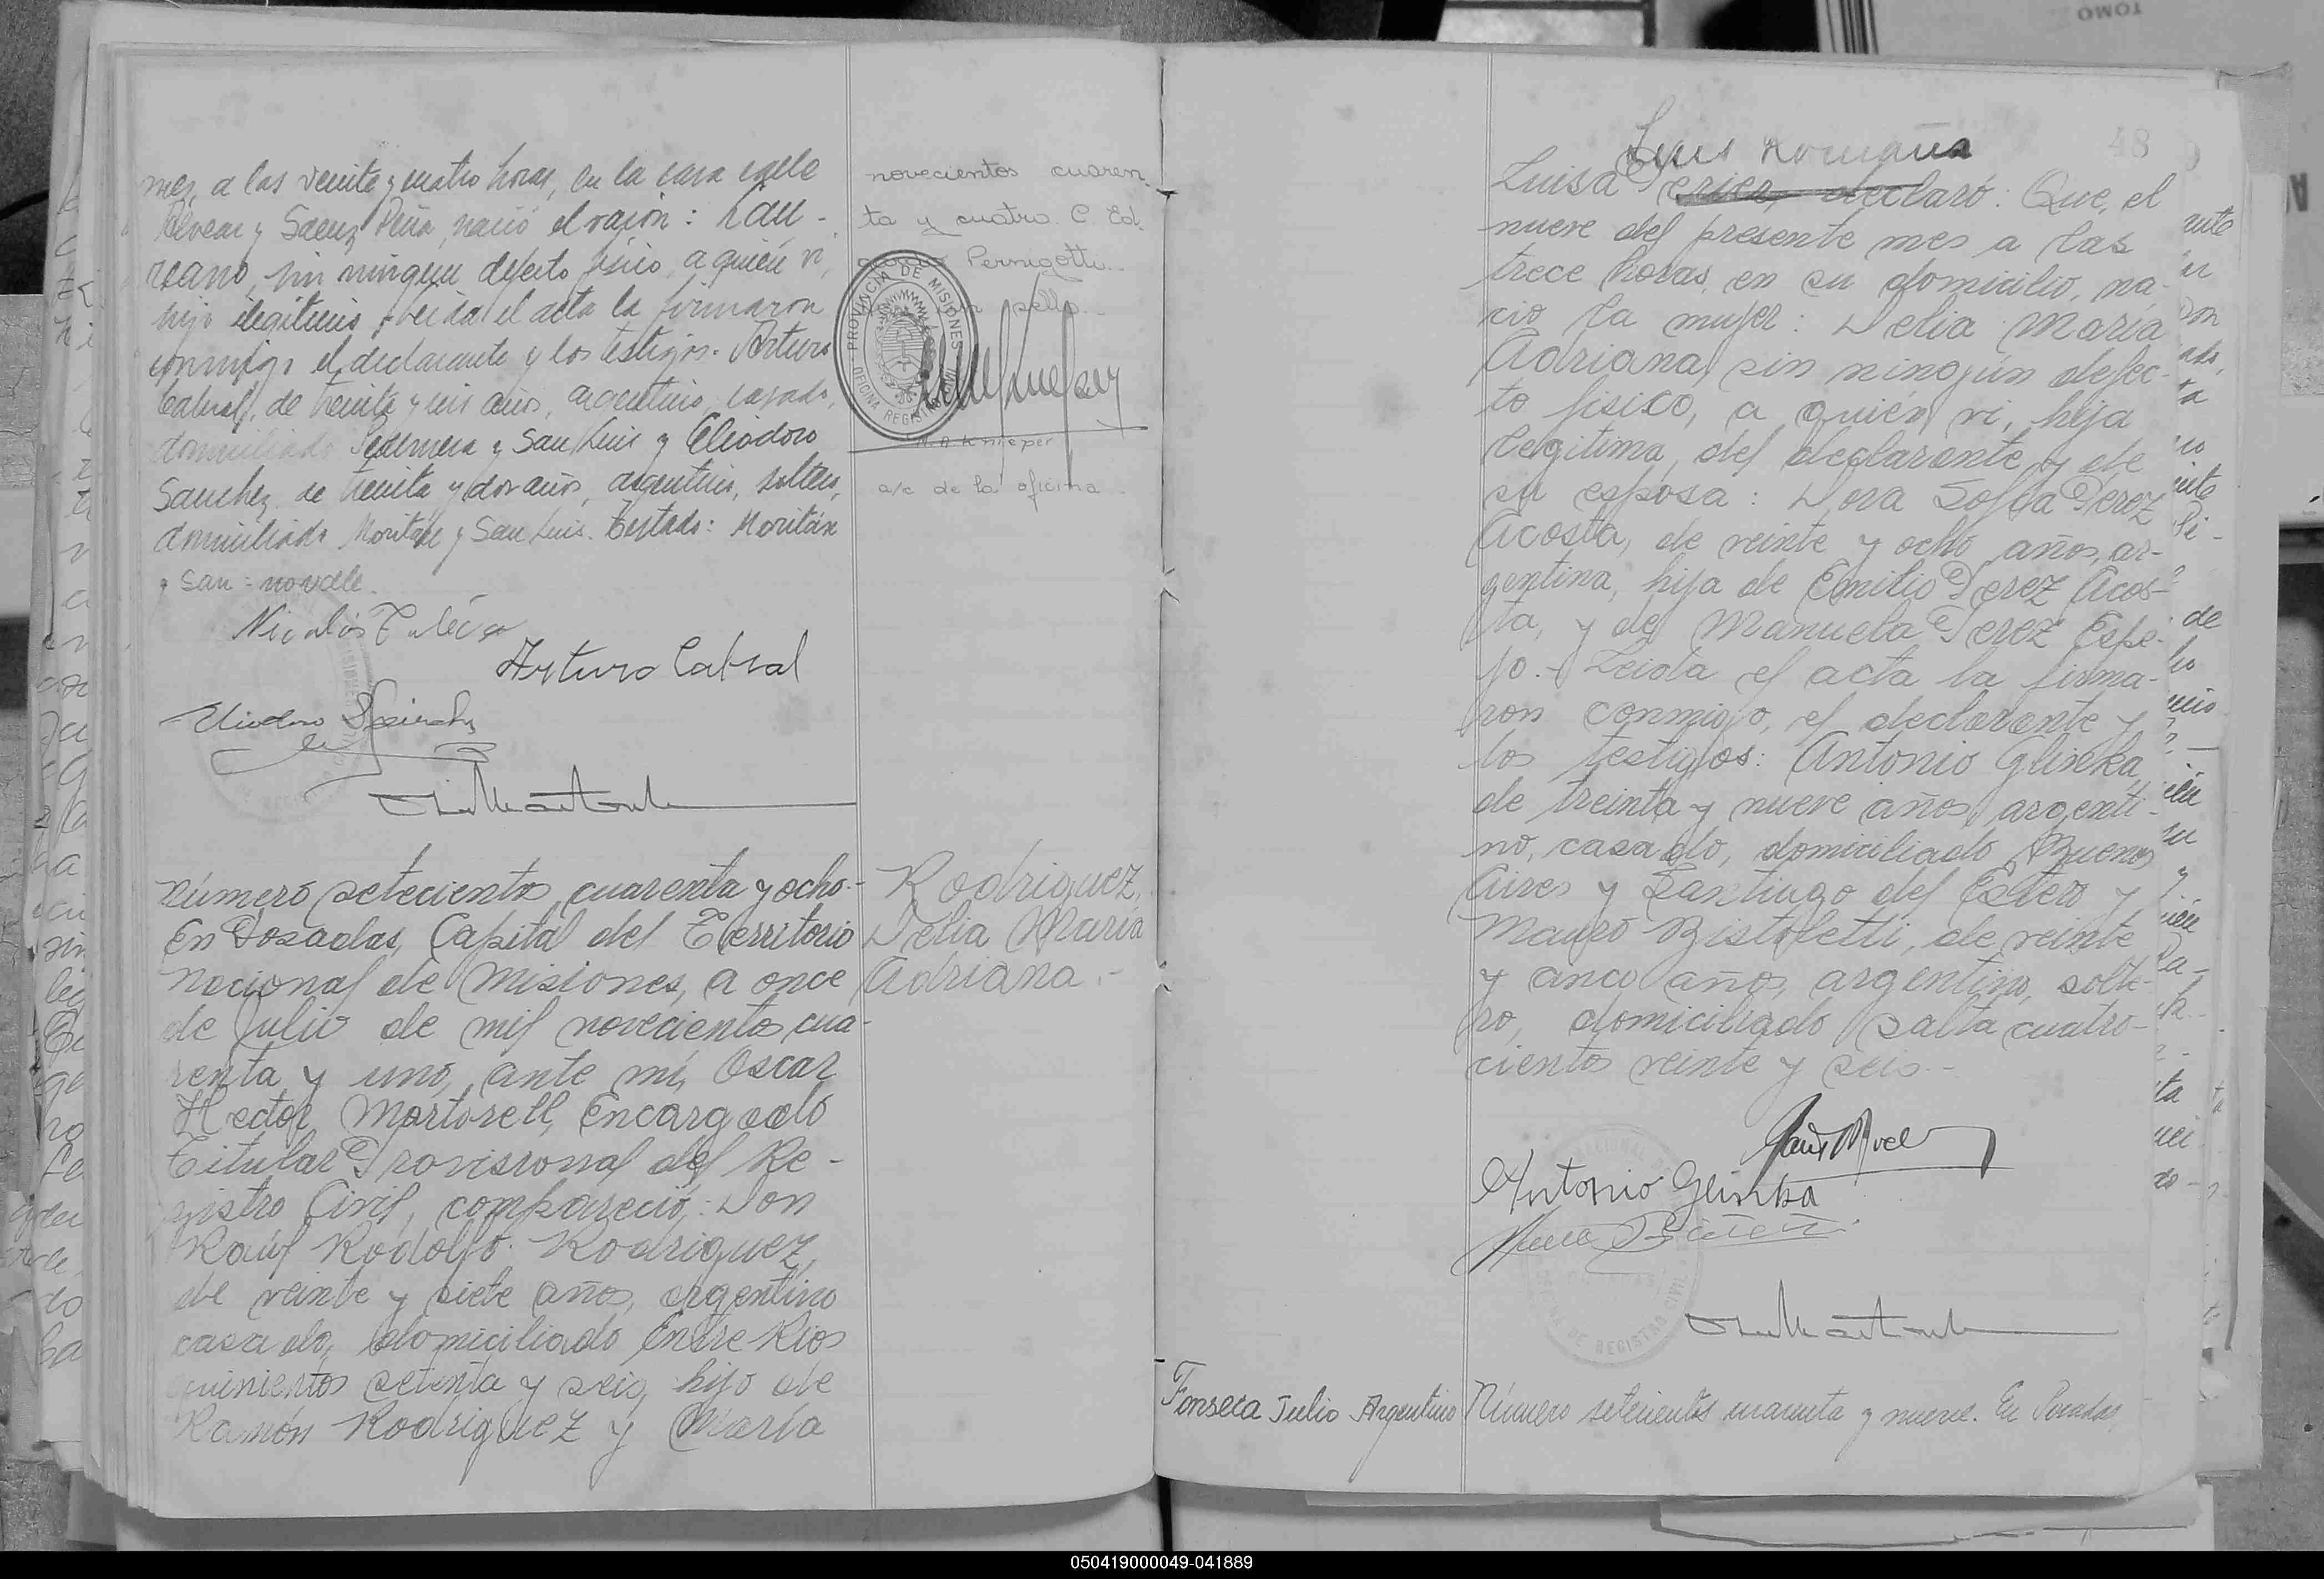 mes, a las veinte y cuatro horas, en la casa calle
Alvear y Saenz Peña, nació el varón: Lau-
reano, sin ningun defecto físico, a quién vi,
hijo ilegitimo, leida el acta la firmaron
conmigo el declarante y los testigos. Arturo
Cabral, de treinta y seis años, argentino, casado,
domiciliado Pedernera y San Luis y Eliodoro
Sanchez de treinta y dos años, argentino, soltero,
domiciliado y San Luis. Testado:
y San = no vale.
Nicolás
Arturo Cabral
Eliodoro Sanchez
novecientos cuaren-
ta y cuatro. C. Ed.
Pernigotti
sello
PROVINCIA DE MISIONES
OFICINA REGISTRO CIVIL
a/c de la oficina
Número setecientos cuarenta y ocho.-
En Posadas, Capital del Territorio
Nacional de Misiones, a once
de Julio de mil novecientos cua-
renta y uno, ante mi, Oscar
Hector Martorell, Encargado
Titular Provisional del Re-
gistro Civil, compareció: Don
Raúl Rodolfo Rodriguez,
de veinte y siete años, argentino
casado, domiciliado Entre Rios
quinientos setenta y seis, hijo de
Ramón Rodriguez y María
Rodriguez,
Delia María
Adriana.-
48
Luis Romaña
Luisa declaró: Que, el
nueve del presente mes a las
trece horas, en su domicilio, na-
ció la mujer: Delia María
Adriana, sin ningún defec-
to físico, a quién vi, hija
legitima, del declarante y de
su esposa: Dora Sofía Perez
Acosta, de veinte y ocho años, ar-
gentina, hija de Emilio Perez Acos-
ta, y de Manuela Perez Espe-
jo.- Leida el acta la firma-
ron conmigo, el declarante y
los testigos: Antonio Glinka,
de treinta y nueve años, argenti-
no, casado, domiciliado Buenos
Aires y Santiago del Estero y
Mauro Bistoletti, de veinte
y cinco años, argentino, solte-
ro, domiciliado Salta cuatro-
cientos veinte y seis.-
Antonio Glinka
Fonseca Julio Argentino
Número setecientos cuarenta y nueve. En Posadas,
TOMO
050419000049-041889